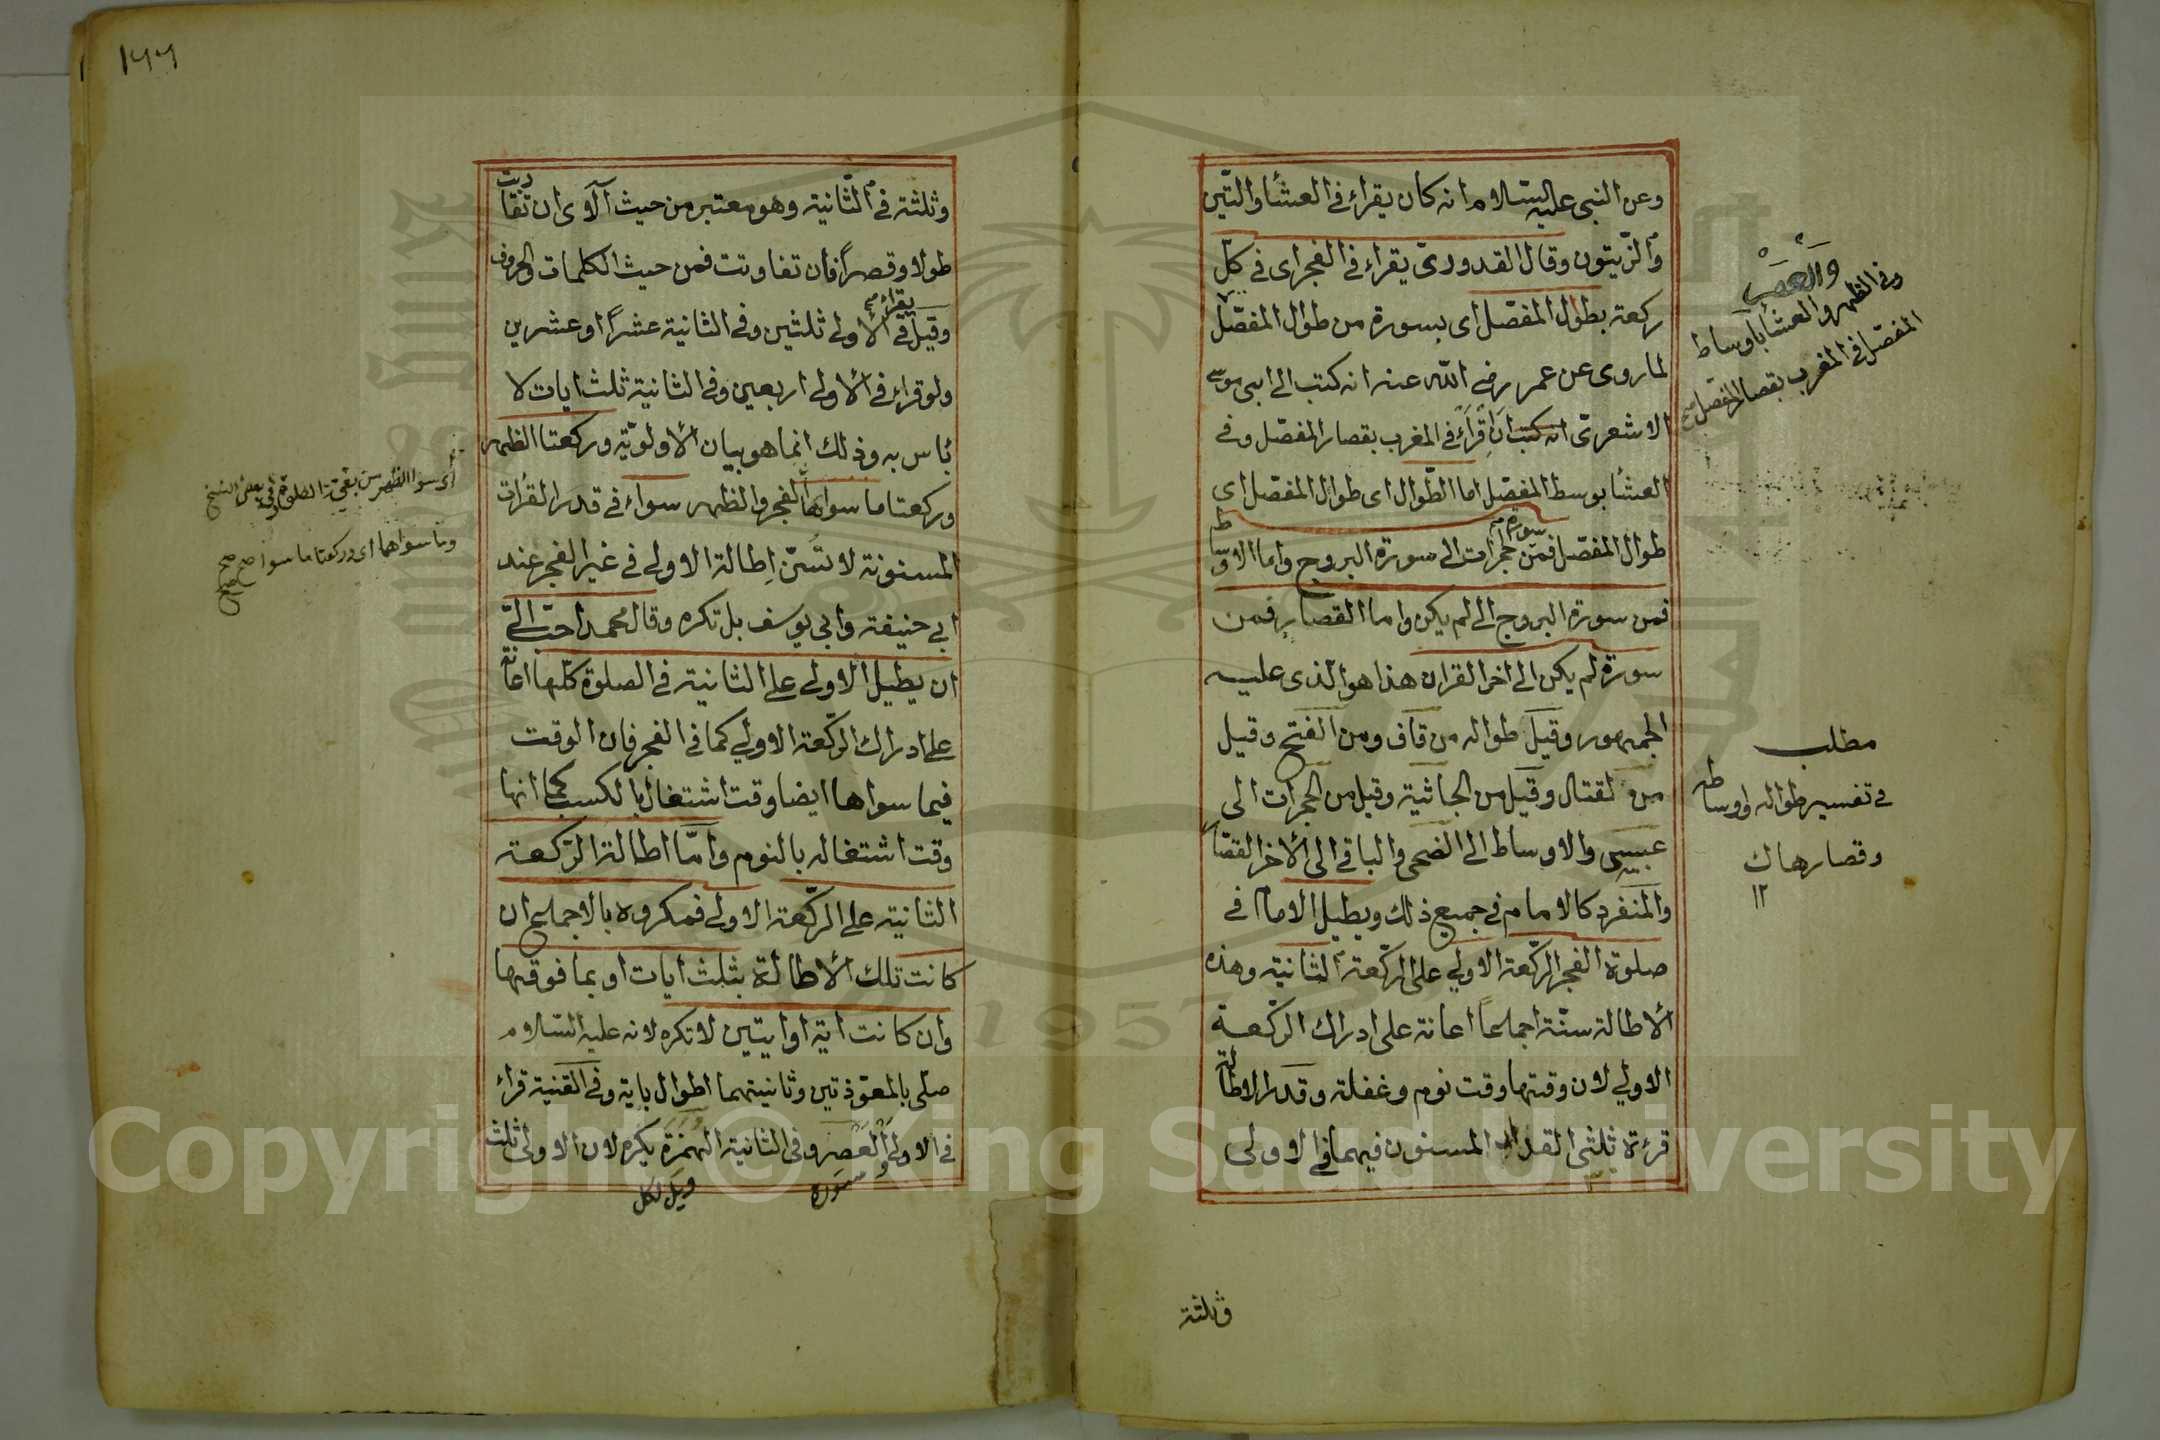 وعن النبى عليه السلام انه كان يقراء فى العشأ والتين
والزيتون وقال القدورى يقراء فى الفجر اى فى كل
ركعة بطوال المفصل اى بسورة من طوال المفصل
لما روى عن عمر رضى الله عنه انه كتب الى ابى موسى
الاشعرى انه كتب ان اقراء فى المغرب بقصار المفصل وفى
العشأ بوسط المفصل اما الطوال اى طوال المفصل اى
طوال المفصل فمن سورة حجرات الى سورة البروج واما الاوسط
فمن سورة البروج الى لم يكن واما القصار فمن
سورة لم يكن الى اخر القران هذا هو الذى عليه
الجمهور وقيل طواله من قاف ومن الفتح وقيل
من القتال وقيل من الجاثية وقيل من الحجرات الى
عبسى والاوساط الى الضحى والباقى الى الاخر القصا
والمنفرد كالامام فى جميع ذلك ويطيل الامام فى
صلوة الفجر الركعة الاولى على الركعة الثانية وهذه
الاطالة سنة اجماعا اعانة على ادراك الركعة
الاولى لان وقتها وقت نوم وغفلة وقدر الاطالة
قرءة ثلثى القدر المسنون فيهما فى الاولى
وثلثة
والعصر
وفى الظهر والعشا باوساط
المفصل فى المغرب بقصار المفصل صح
مطلب
فى تفسير طواله واوساطه
وقصارها ك
١٢
١٧٧
وثلثة فى الثانية وهو معتبر من حيث الآى ان تقاربت
طولا وقصرا فان تفاوتت فمن حيث الكلمات والحروف
وقيل يقراء فى الاولى ثلثين وفى الثانية عشرا او عشرين
ولو قراء فى الاولى اربعين وفى الثانية ثلث ايات لا
بأس به وذلك انما هو بيان الاولوية وركعتا الظهر
وركعتا ما سواها الفجر والظهر سواء فى قدر القرات
المسنونة لا تسن اطالة الاولى فى غير الفجر عند
ابى حنيفة وابى يوسف بل تكره وقال محمد احب الى
ان يطيل الاولى على الثانية فى الصلوة كلها اعانة
على ادراك الركعة الاولى كما فى الفجر فان الوقت
فيما سواها ايضا وقت اشتغال بالكسب كما انها
وقت اشتغاله بالنوم واما اطالة الركعة
الثانية على الركعة الاولى فمكروه بالاجماع ان
كانت تلك الاطالة بثلث ايات او بما فوقها
وان كانت اية او ايتين لا تكره لانه عليه السلام
صلى بالمعوذتين وثانيتهما اطول باية وفى القنية قراء
فى الاولى والعصر وفى الثانية الهمزة يكره لان الاولى ثلث
سورة
ويل لكل
اى سوا الظهر من بقية الصلوة وفى بعض النسخ
وما سواهما اى وركعتا ما سوا صح صح
Copyright © King Saud University
1957